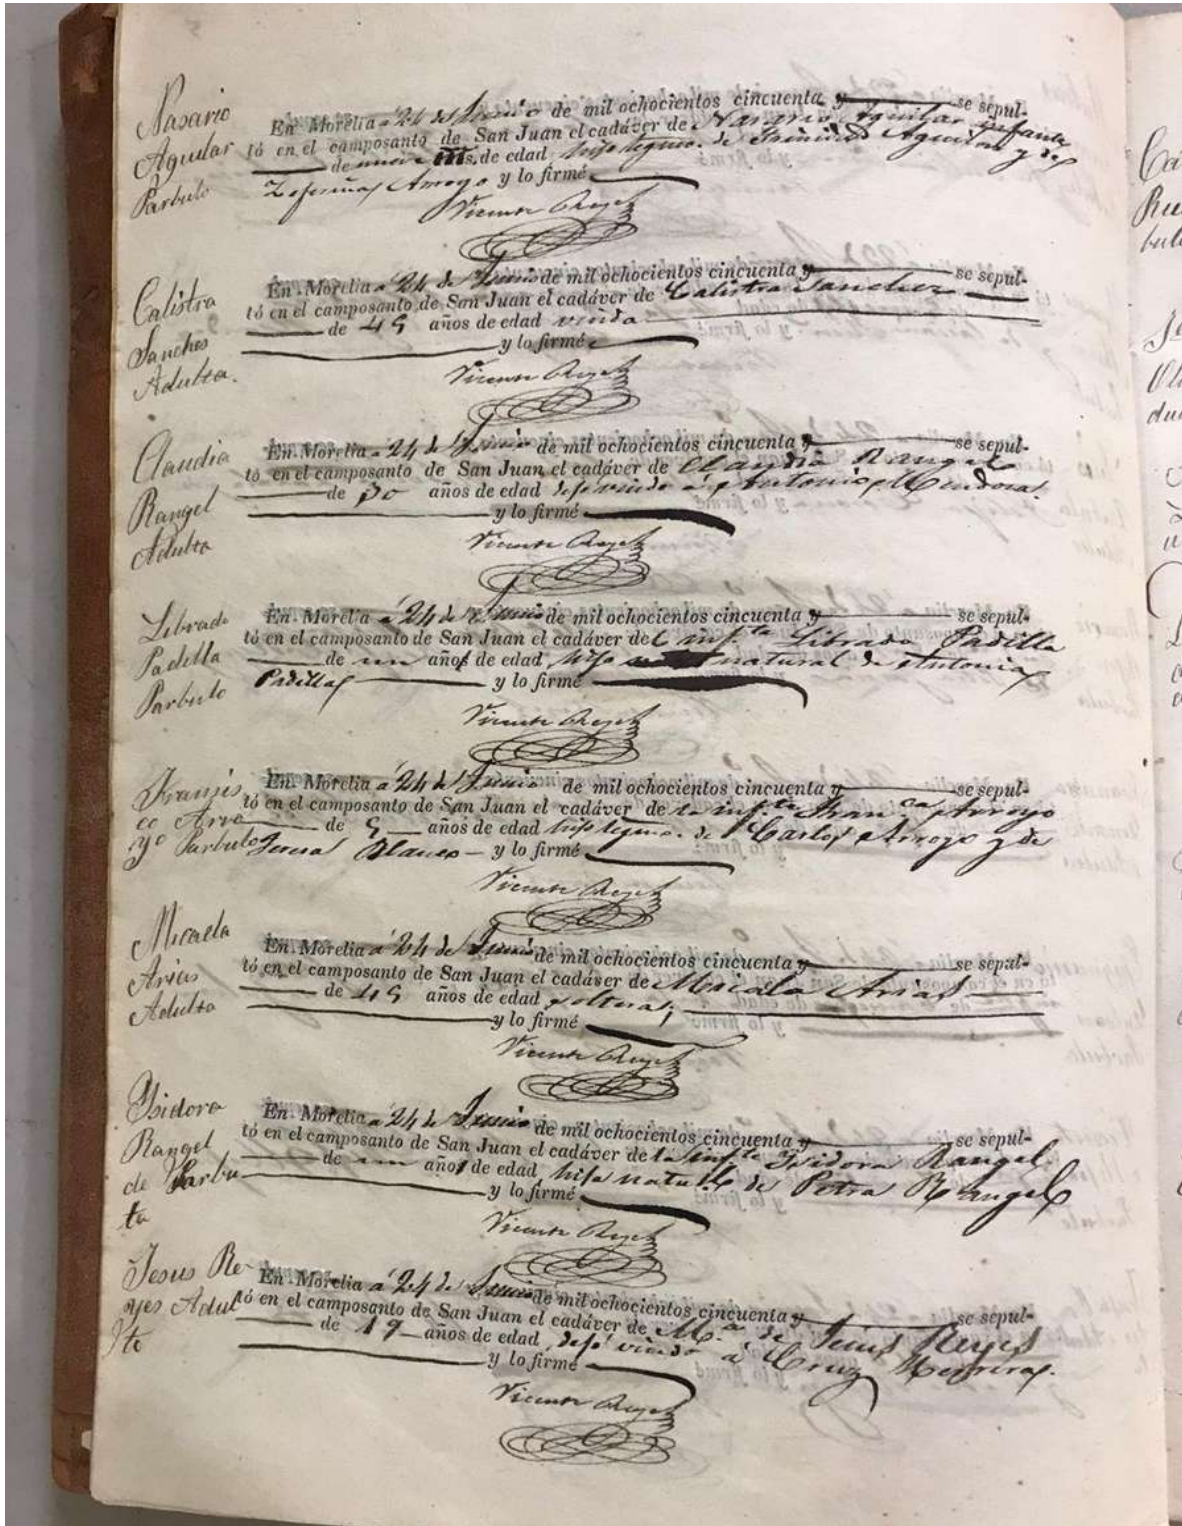 Nasario
Aguilar
Parbulo
En Morelia á 24 de Junio de mil ochocientos cincuenta y se sepul-
tó en el camposanto de San Juan el cadáver de Nasario Aguilar infante
de nueve ms. de edad hijo legmo. de Trinidad Aguilar y de
Zeferina Arroyo y lo firmé
Vicente
Calistra
Sanches
Adulta.
En Morelia á 24 de Junio de mil ochocientos cincuenta y se sepul-
tó en el camposanto de San Juan el cadáver de Calistra Sanchez
de 45 años de edad viuda
y lo firmé
Vicente
Claudia
Rangel
Adulta
En Morelia á 24 de Junio de mil ochocientos cincuenta y se sepul-
tó en el camposanto de San Juan el cadáver de Claudia Rangel
de años de edad dejó viudo á Antonio Mendosa.
y lo firmé
Vicente
Librado
Padilla
Parbulo
En Morelia á 24 de Junio de mil ochocientos cincuenta y se sepul-
tó en el camposanto de San Juan el cadáver del infte. Librado Padilla
de un año de edad hijo natural de Antonia
Padilla y lo firmé
Vicente
Fransis
co Arro
yo Parbulo
En Morelia á 24 de Junio de mil ochocientos cincuenta y se sepul-
tó en el camposanto de San Juan el cadáver de la infte. Franca Arroyo
de 5 años de edad hija legma. de Carlos Arroyo y de
Teresa Blanco y lo firmé
Vicente
Micaela
Arias
Adulta
En Morelia á 24 de Junio de mil ochocientos cincuenta y se sepul-
tó en el camposanto de San Juan el cadáver de Micaela Arias
de 45 años de edad soltera
y lo firmé
Vicente
Ysidora
Rangel
de Parbu
ta
En Morelia á 24 de Junio de mil ochocientos cincuenta y se sepul-
tó en el camposanto de San Juan el cadáver de la infte Ysidora Rangel
de un año de edad, hija natul. de Petra Rangel
y lo firmé
Vicente
Jesus Re
yes Adul
to
En Morelia á 24 de Junio de mil ochocientos cincuenta y se sepul-
tó en el camposanto de San Juan el cadáver de Ma. de Jesus Reyes
de 19 años de edad, dejó viudo á Cruz
y lo firmé
Vicente